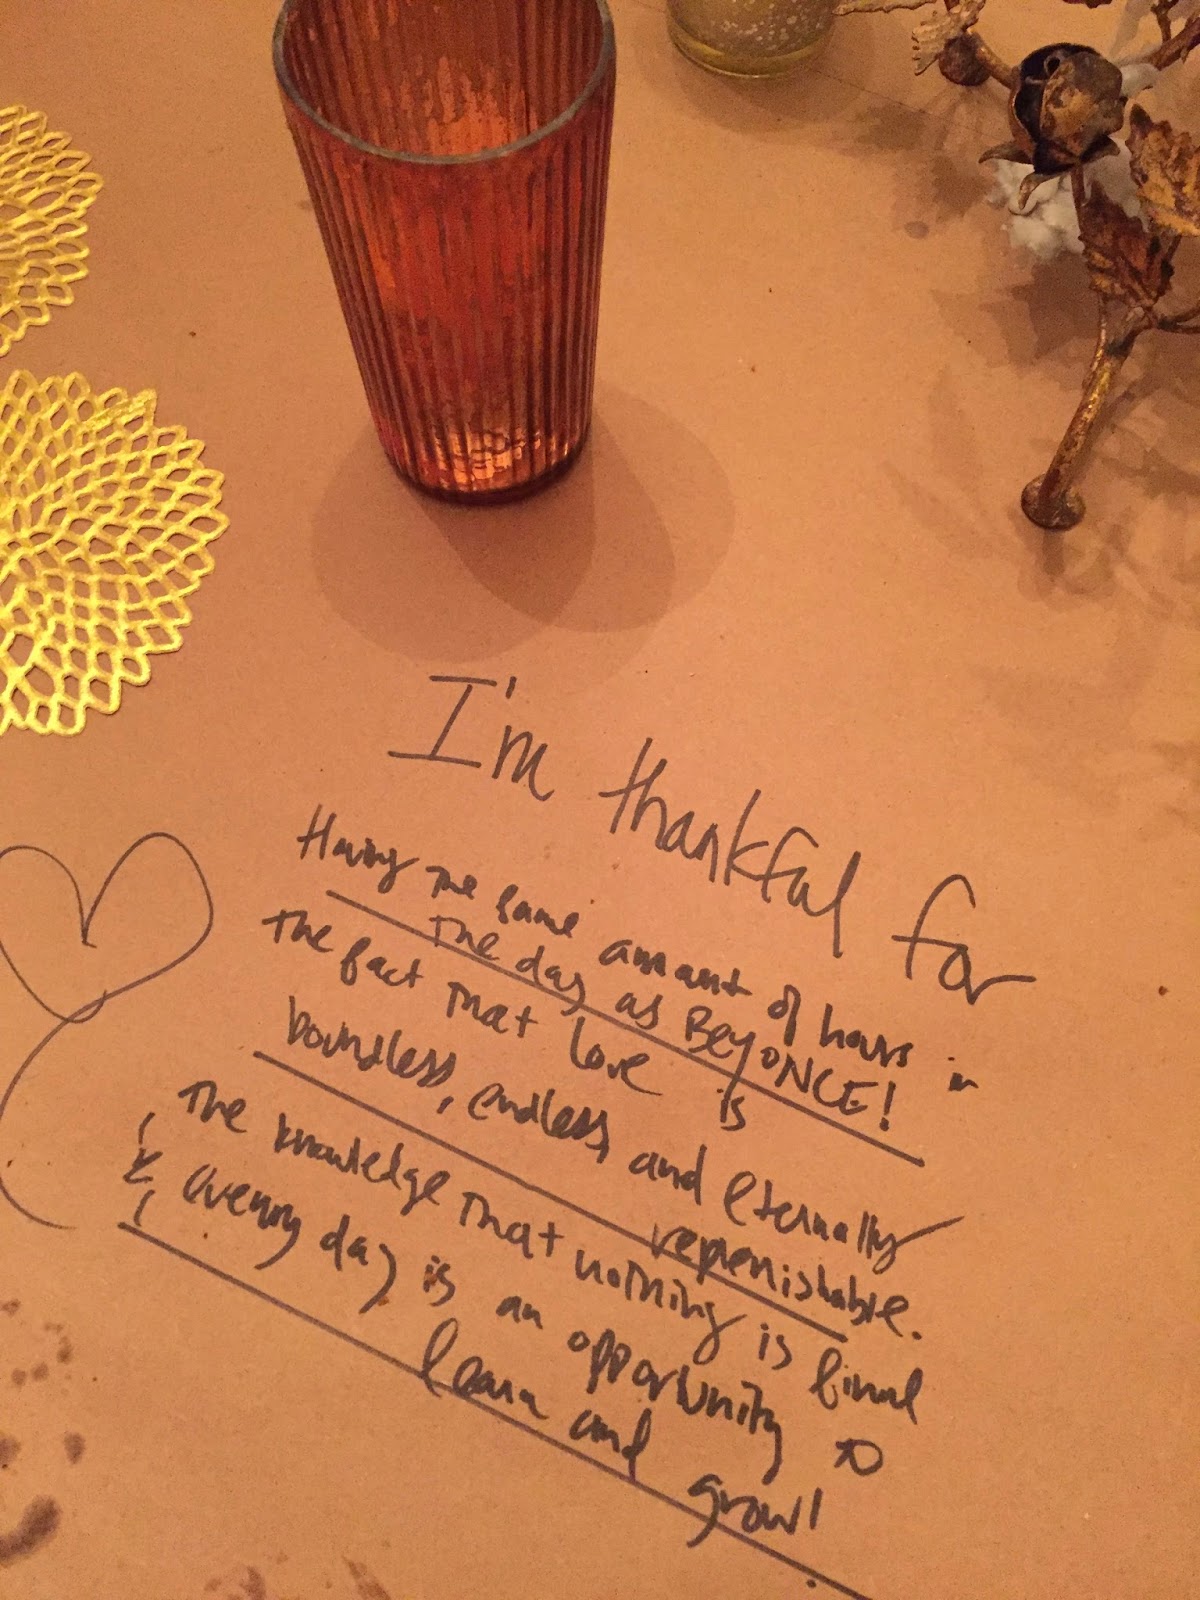 I'm thankful for
Having the same amount of hours in
the day as BEYONCE!
The fact that love is
boundless, endless, and eternally
replenishable.
The knowledge that nothing is final
& every day is an opportunity to
learn and grow!